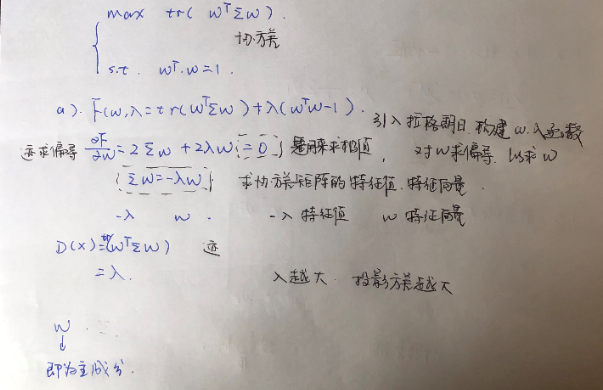 max tr(wᵀΣw).
协方差
s.t. wᵀ·w=1.
a). F(w,λ=tr(wᵀΣw)+λ(wᵀw-1). 引入拉格朗日,构建w,λ函数
迹求偏导 ∂F/∂w=2Σw+2λw=0 是用来求极值, 对w求偏导,以求w
Σw=-λw 求协方差矩阵的特征值.特征向量.
-λ w. -λ 特征值 w 特征向量
D(X)=(wᵀΣw) 迹
=λ. λ越大.投影方差越大
w
↓
即为主成分.